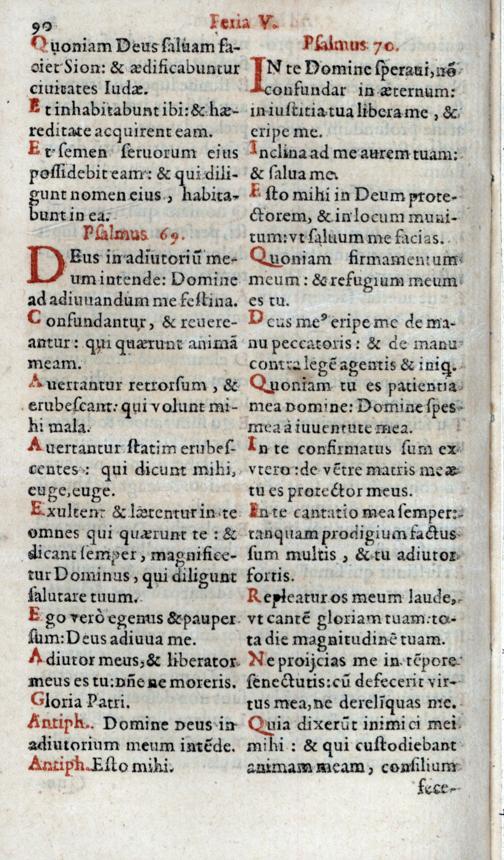 90
Feria V.
Quoniam Deus saluam fa-
ciet Sion: & ædificabuntur
ciuitates Iudæ.
Et inhabitabunt ibi: & hæ-
reditate acquirent eam.
Et semen seruorum eius
possidebit eam: & qui dili-
gunt nomen eius, habita-
bunt in ea.
Psalmus 69.
DEus in adiutoriū me-
um intende: Domine
ad adiuuandum me festina.
Confundantur, & reuere-
antur: qui quærunt animā
meam.
Auertantur retrorsum, &
erubescant: qui volunt mi-
hi mala.
Auertantur statim erubes-
centes: qui dicunt mihi,
euge, euge.
Exultent & lætentur in te
omnes qui quærunt te: &
dicant semper, magnifice-
tur Dominus, qui diligunt
salutare tuum.
Ego verò egenus & pauper
sum: Deus adiuua me.
Adiutor meus, & liberator
meus es tu: dñe ne moreris.
Gloria Patri.
Antiph. Domine Deus in
adiutorium meum intēde.
Antiph. Esto mihi.
Psalmus 70.
IN te Domine speraui, nō
confundar in æternum:
in iustitia tua libera me, &
eripe me.
Inclina ad me aurem tuam:
& salua me.
Esto mihi in Deum prote-
ctorem, & in locum muni-
tum: vt saluum me facias.
Quoniam firmamentum
meum: & refugium meum
es tu.
Deus meꝰ eripe me de ma-
nu peccatoris: & de manu
contra legē agentis & iniq.
Quoniam tu es patientia
mea Domine: Domine spes
mea à iuuentute mea.
In te confirmatus sum ex
vtero: de vētre matris meæ
tu es protector meus.
In te cantatio mea semper:
tanquam prodigium factus
sum multis, & tu adiutor
fortis.
Repleatur os meum laude,
vt cantē gloriam tuam: to-
ta die magnitudinē tuam.
Ne proijcias me in tēpore
senectutis: cū defecerit vir-
tus mea, ne derelīquas me.
Quia dixerūt inimici mei
mihi: & qui custodiebant
animam meam, consilium
fece-